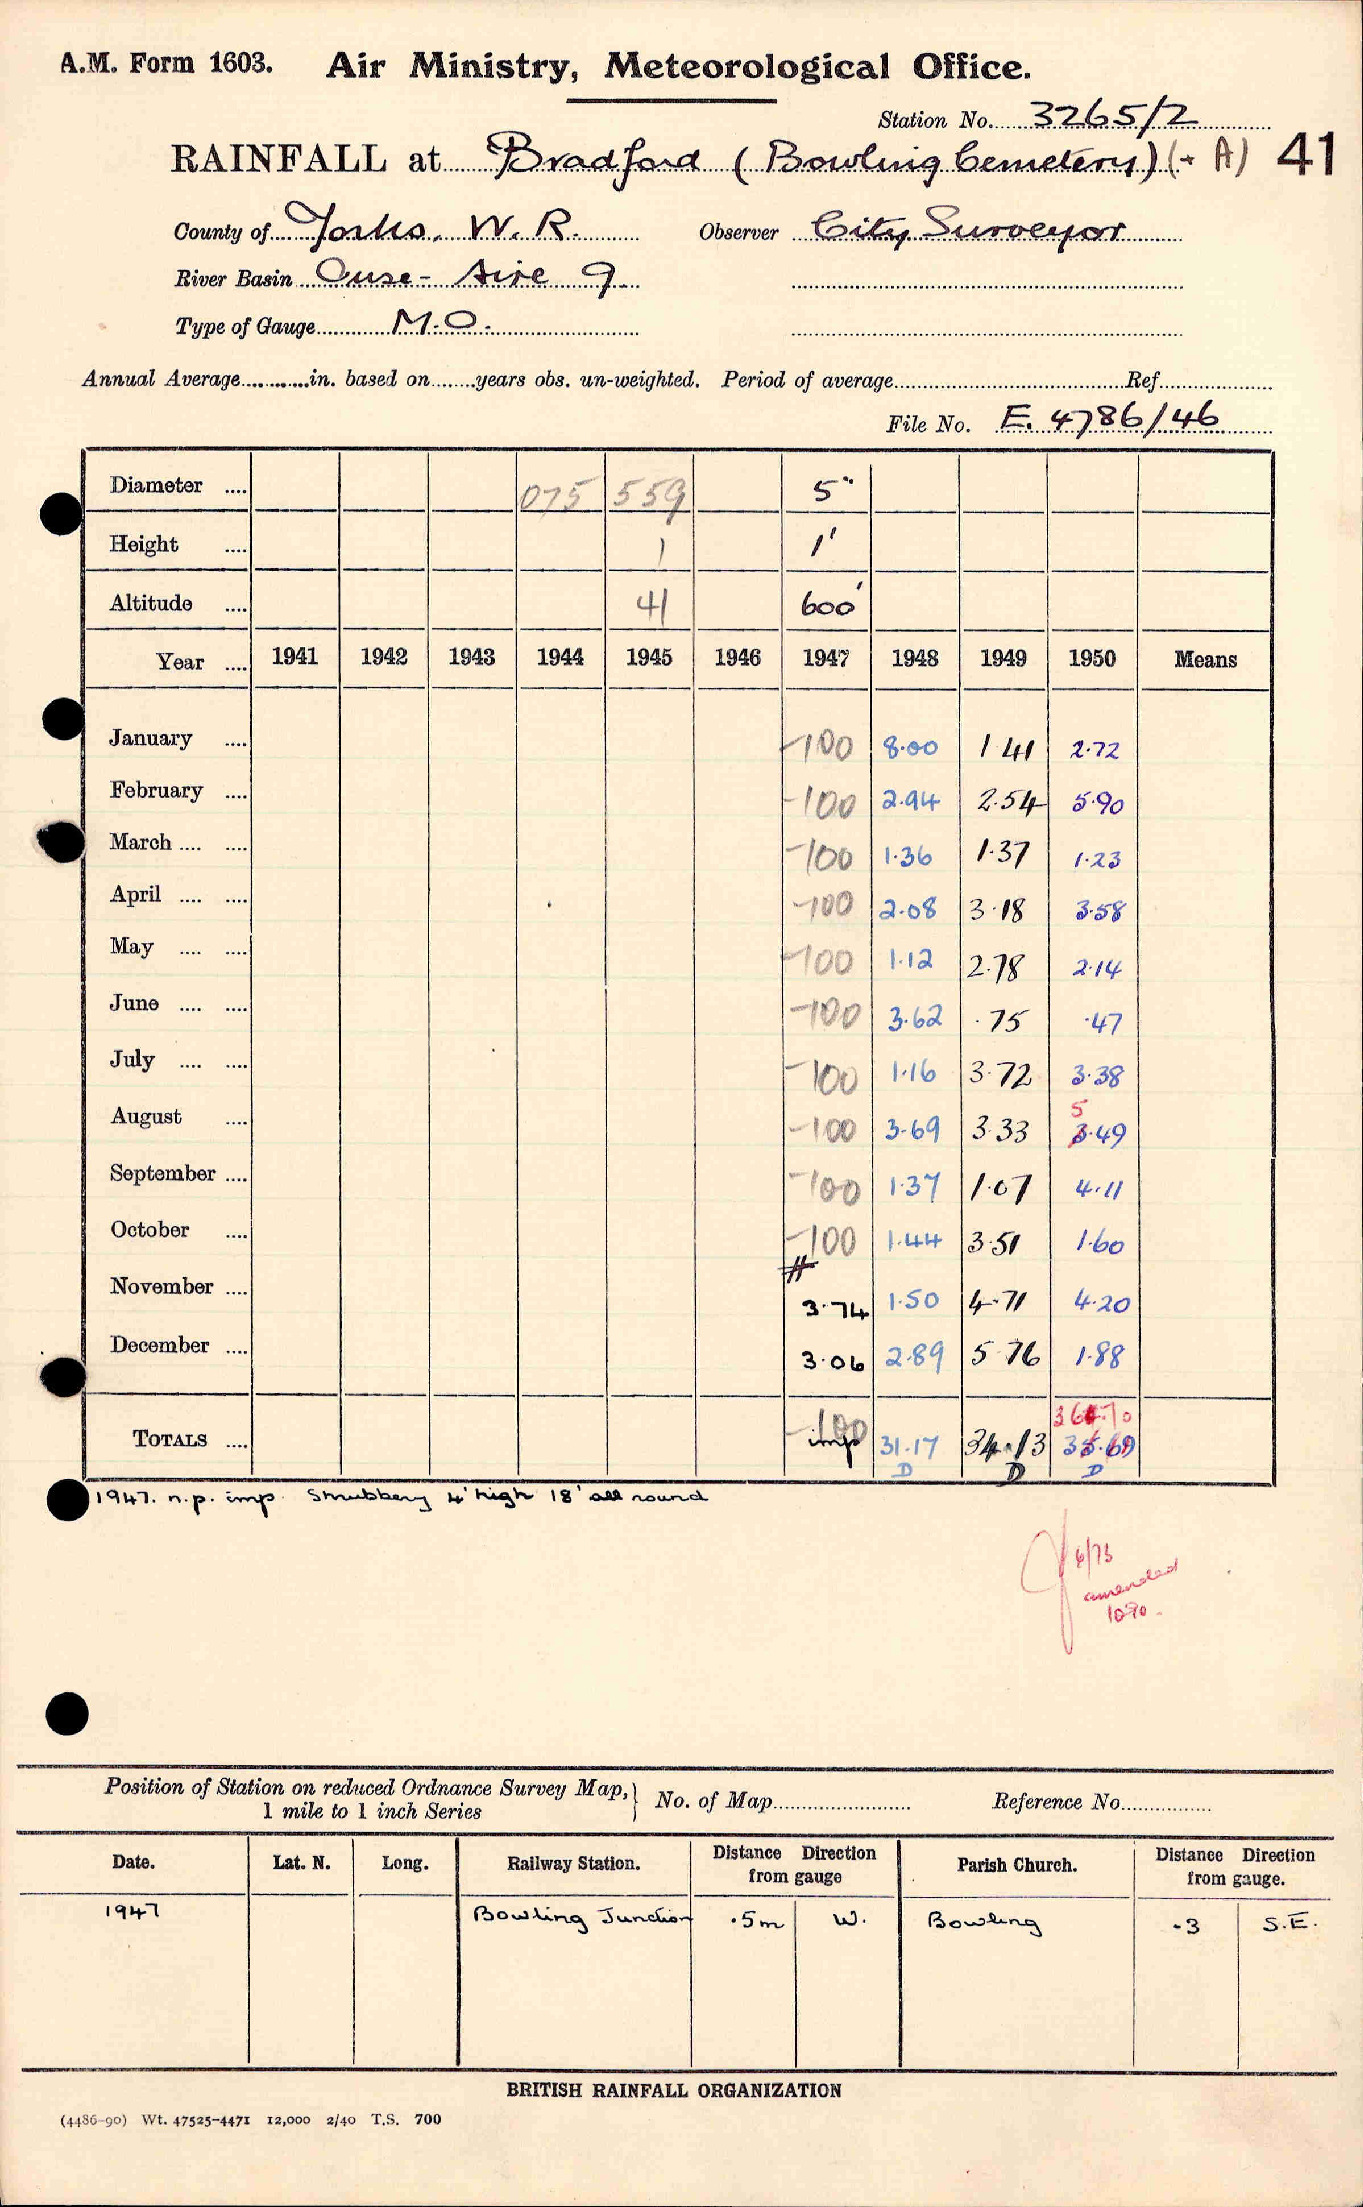 A.M. Form 1603. Air Ministry, Meteorological Office.
Station No. 3265/2
RAINFALL at Bradford (Bowling Cemetery) (+ A) 41
County of Yorks. W.R. Observer City Surveyor
River Basin Ouse - Aire 9
Type of Gauge M.O.
Annual Average............in. based on........years obs. un-weighted. Period of average........ Ref........
File No. E. 4786/46
Diameter .... 075 559 5"
Height .... 1 1'
Altitude .... 41 600'
Year .... 1941 1942 1943 1944 1945 1946 1947 1948 1949 1950 Means
January .... -100 8.00 1 41 2.72
February .... -100 2.94 2.54 5.90
March .... .... -100 1.36 1.37 1.23
April .... .... -100 2.08 3.18 3.58
May .... .... -100 1.12 2.78 2.14
June .... .... -100 3.62 .75 .47
July .... .... -100 1.16 3.72 3.38
5
August .... -100 3.69 3.33 3.49
September .... -100 1.37 1.07 4.11
October .... -100 1.44 3.51 1.60
November .... 3.74 1.50 4.71 4.20
December .... 3.06 2.89 5 76 1.88
-100
TOTALS .... imp 31.17 34.13
D D D
1947. n.p. imp. Shrubbery 4' high 18' all round
6/73
amended
Position of Station on reduced Ordnance Survey Map, } No. of Map........ Reference No........
1 mile to 1 inch Series
Date. Lat. N. Long. Railway Station. Distance Direction from gauge Parish Church. Distance Direction from gauge.
1947 Bowling Junction .5m W. Bowling .3 S.E.
BRITISH RAINFALL ORGANIZATION
(4486-90) Wt. 47525-4471 12,000 2/40 T.S. 700